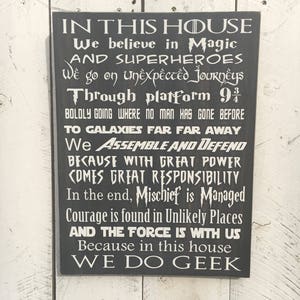 IN THIS HOUSE
We believe in Magic
AND SUPERHEROES
We go on unexpected Journeys
Through platform 9 3/4
BOLDLY GOING WHERE NO MAN HAS GONE BEFORE
TO GALAXIES FAR FAR AWAY
We ASSEMBLE AND DEFEND
BECAUSE WITH GREAT POWER
COMES GREAT RESPONSIBILITY
In the end, Mischief is Managed
Courage is found in Unlikely Places
AND THE FORCE IS WITH US
Because in this house
WE DO GEEK